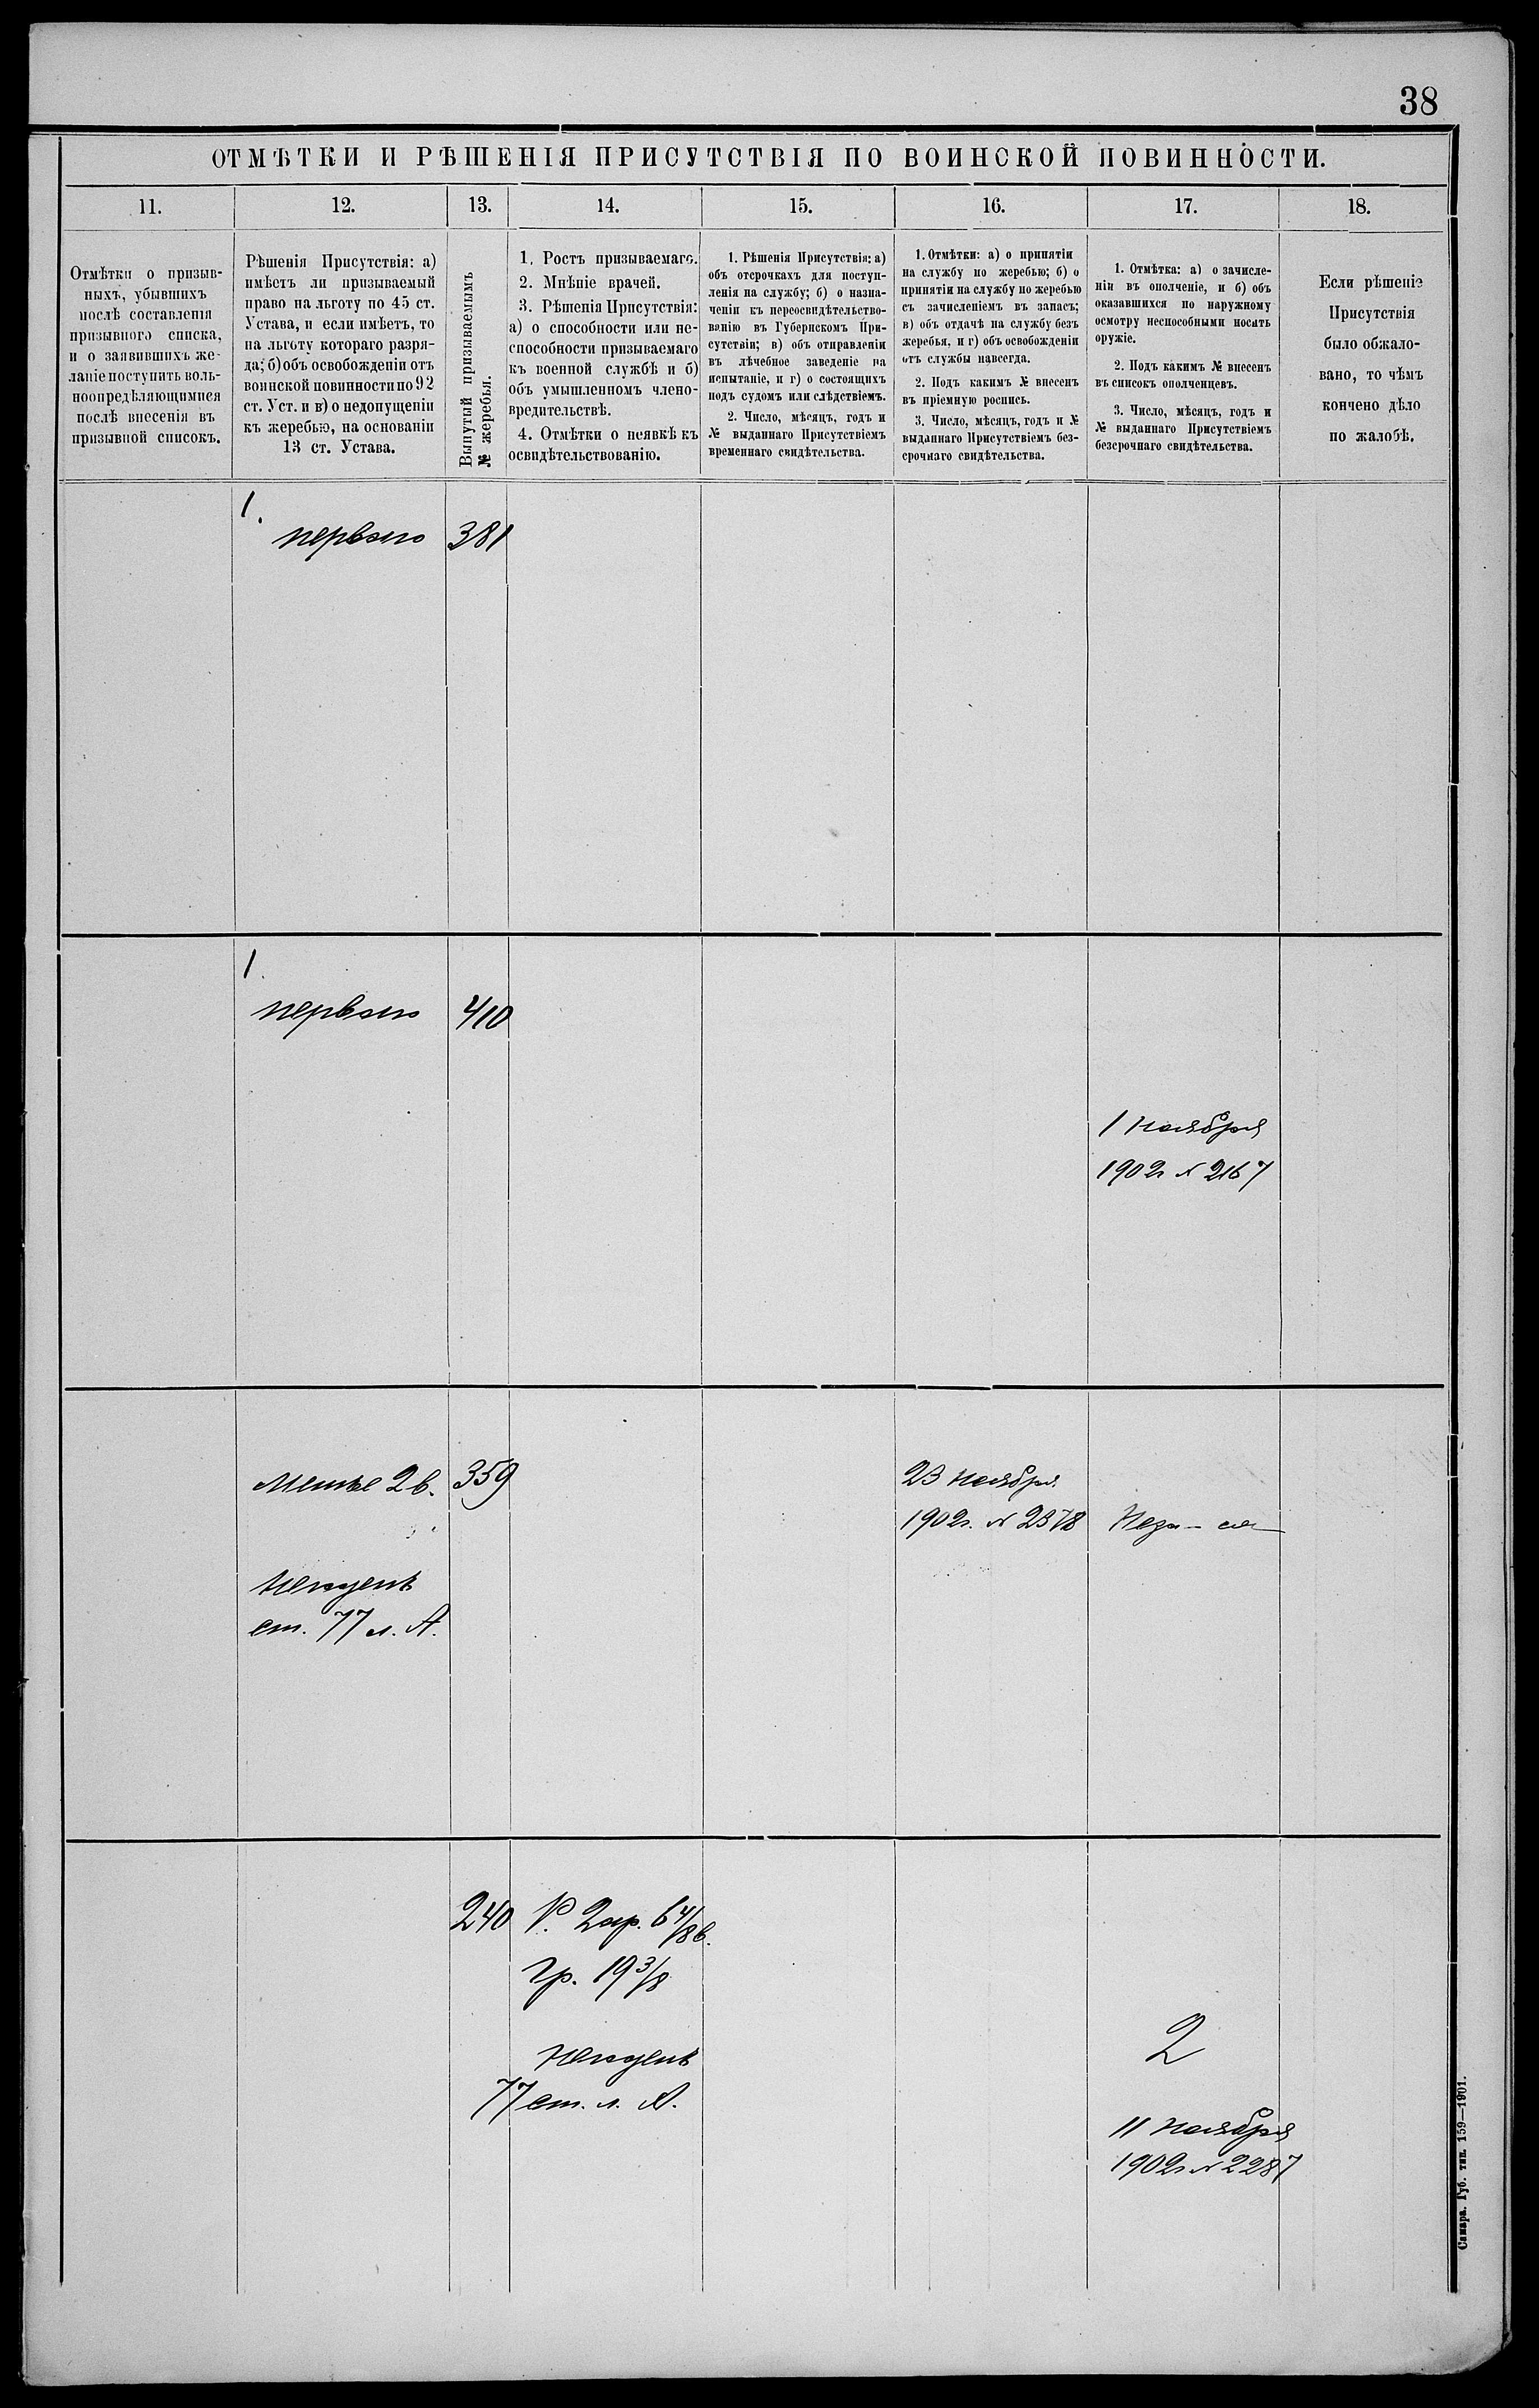 38
ОТМѢТКИ И РѢШЕНІЯ ПРИСУТСТВІЯ ПО ВОИНСКОЙ ПОВИННОСТИ.
11.
12.
13.
14.
15.
16.
17.
18.
Отмѣтки о призыв-
ныхъ, убывшихъ
послѣ составленія
призывного списка,
и о заявившихъ же-
ланіе поступить воль-
ноопредѣляющимися
послѣ внесенія въ
призывной списокъ.
Рѣшенія Присутствія: а)
имѣетъ ли призываемый
право на льготу по 45 ст.
Устава, и если имѣетъ, то
на льготу котораго разря-
да; б) объ освобожденіи отъ
воинской повинности по 92
ст. Уст. и в) о недопущеніи
къ жеребью, на основаніи
13 ст. Устава.
Вынутый призываемымъ
№ жеребья.
1. Ростъ призываемаго.
2. Мнѣніе врачей.
3. Рѣшенія Присутствія:
а) о способности или не-
способности призываемаго
къ военной службѣ и б)
объ умышленномъ члено-
вредительствѣ.
4. Отмѣтки о неявкѣ къ
освидѣтельствованію.
1. Рѣшенія Присутствія: а)
объ отсрочкахъ для поступ-
ленія на службу; б) о назна-
ченіи къ переосвидѣтельство-
ванію въ Губернскомъ При-
сутствіи; в) объ отправленіи
въ лѣчебное заведеніе на
испытаніе, и г) о состоящихъ
подъ судомъ или слѣдствіемъ.
2. Число, мѣсяцъ, годъ и
№ выданнаго Присутствіемъ
временнаго свидѣтельства.
1. Отмѣтки: а) о принятіи
на службу по жеребью; б) о
принятіи на службу по жеребью
съ зачисленіемъ въ запасъ;
в) объ отдачѣ на службу безъ
жеребья, и г) объ освобожденіи
отъ службы навсегда.
2. Подъ какимъ № внесенъ
въ пріемную роспись.
3. Число, мѣсяцъ, годъ и №
выданнаго Присутствіемъ без-
срочнаго свидѣтельства.
1. Отмѣтка: а) о зачисле-
ніи въ ополченіе, и б) объ
оказавшихся по наружному
осмотру неспособными носить
оружіе.
2. Подъ какимъ № внесенъ
въ списокъ ополченцевъ.
3. Число, мѣсяцъ, годъ и
№ выданнаго Присутствіемъ
безсрочнаго свидѣтельства.
Если рѣшеніе
Присутствія
было обжало-
вано, то чѣмъ
кончено дѣло
по жалобѣ.
1.
перваго 381
1.
перваго 410
1 ноября
1902г № 2167
Менѣе 2 в. 359
23 ноября
1902г. № 2378
Негоденъ
ст. 77 л. А.
240 Р. 2 ар. 6 4/8 в.
Гр. 19 3/8
Негоденъ
77 ст. л. А.
2
11 ноября
1902г № 2287
Самара. Губ. тип. 159—1901.